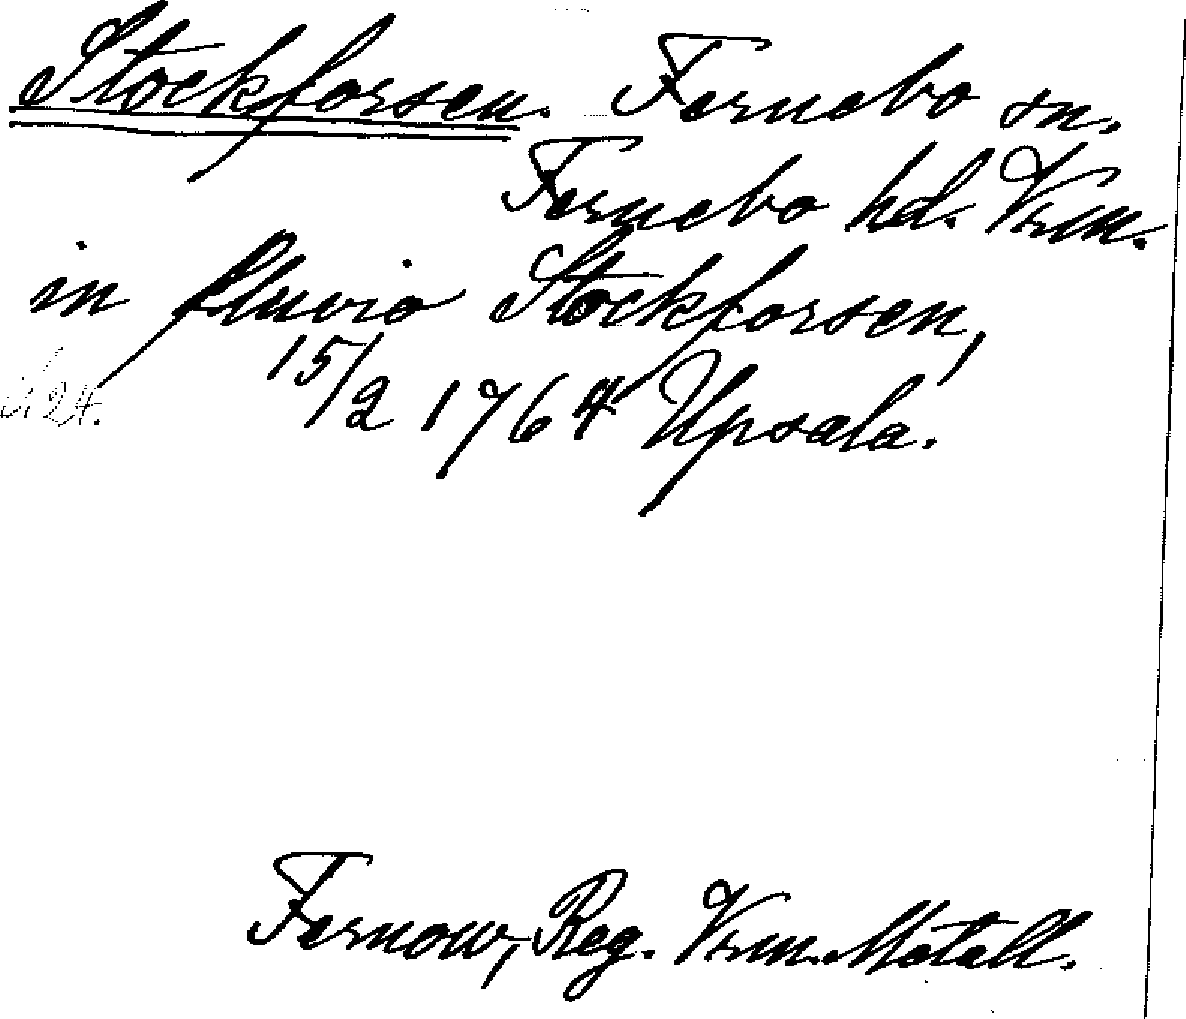 Stockforsen. Fernebo sn.
Fernebo hd. Vrm.
in fluvio Stockforsen,
15/2 1764 Upsala.
24.
Fernow, Reg. Vrm. Metall.